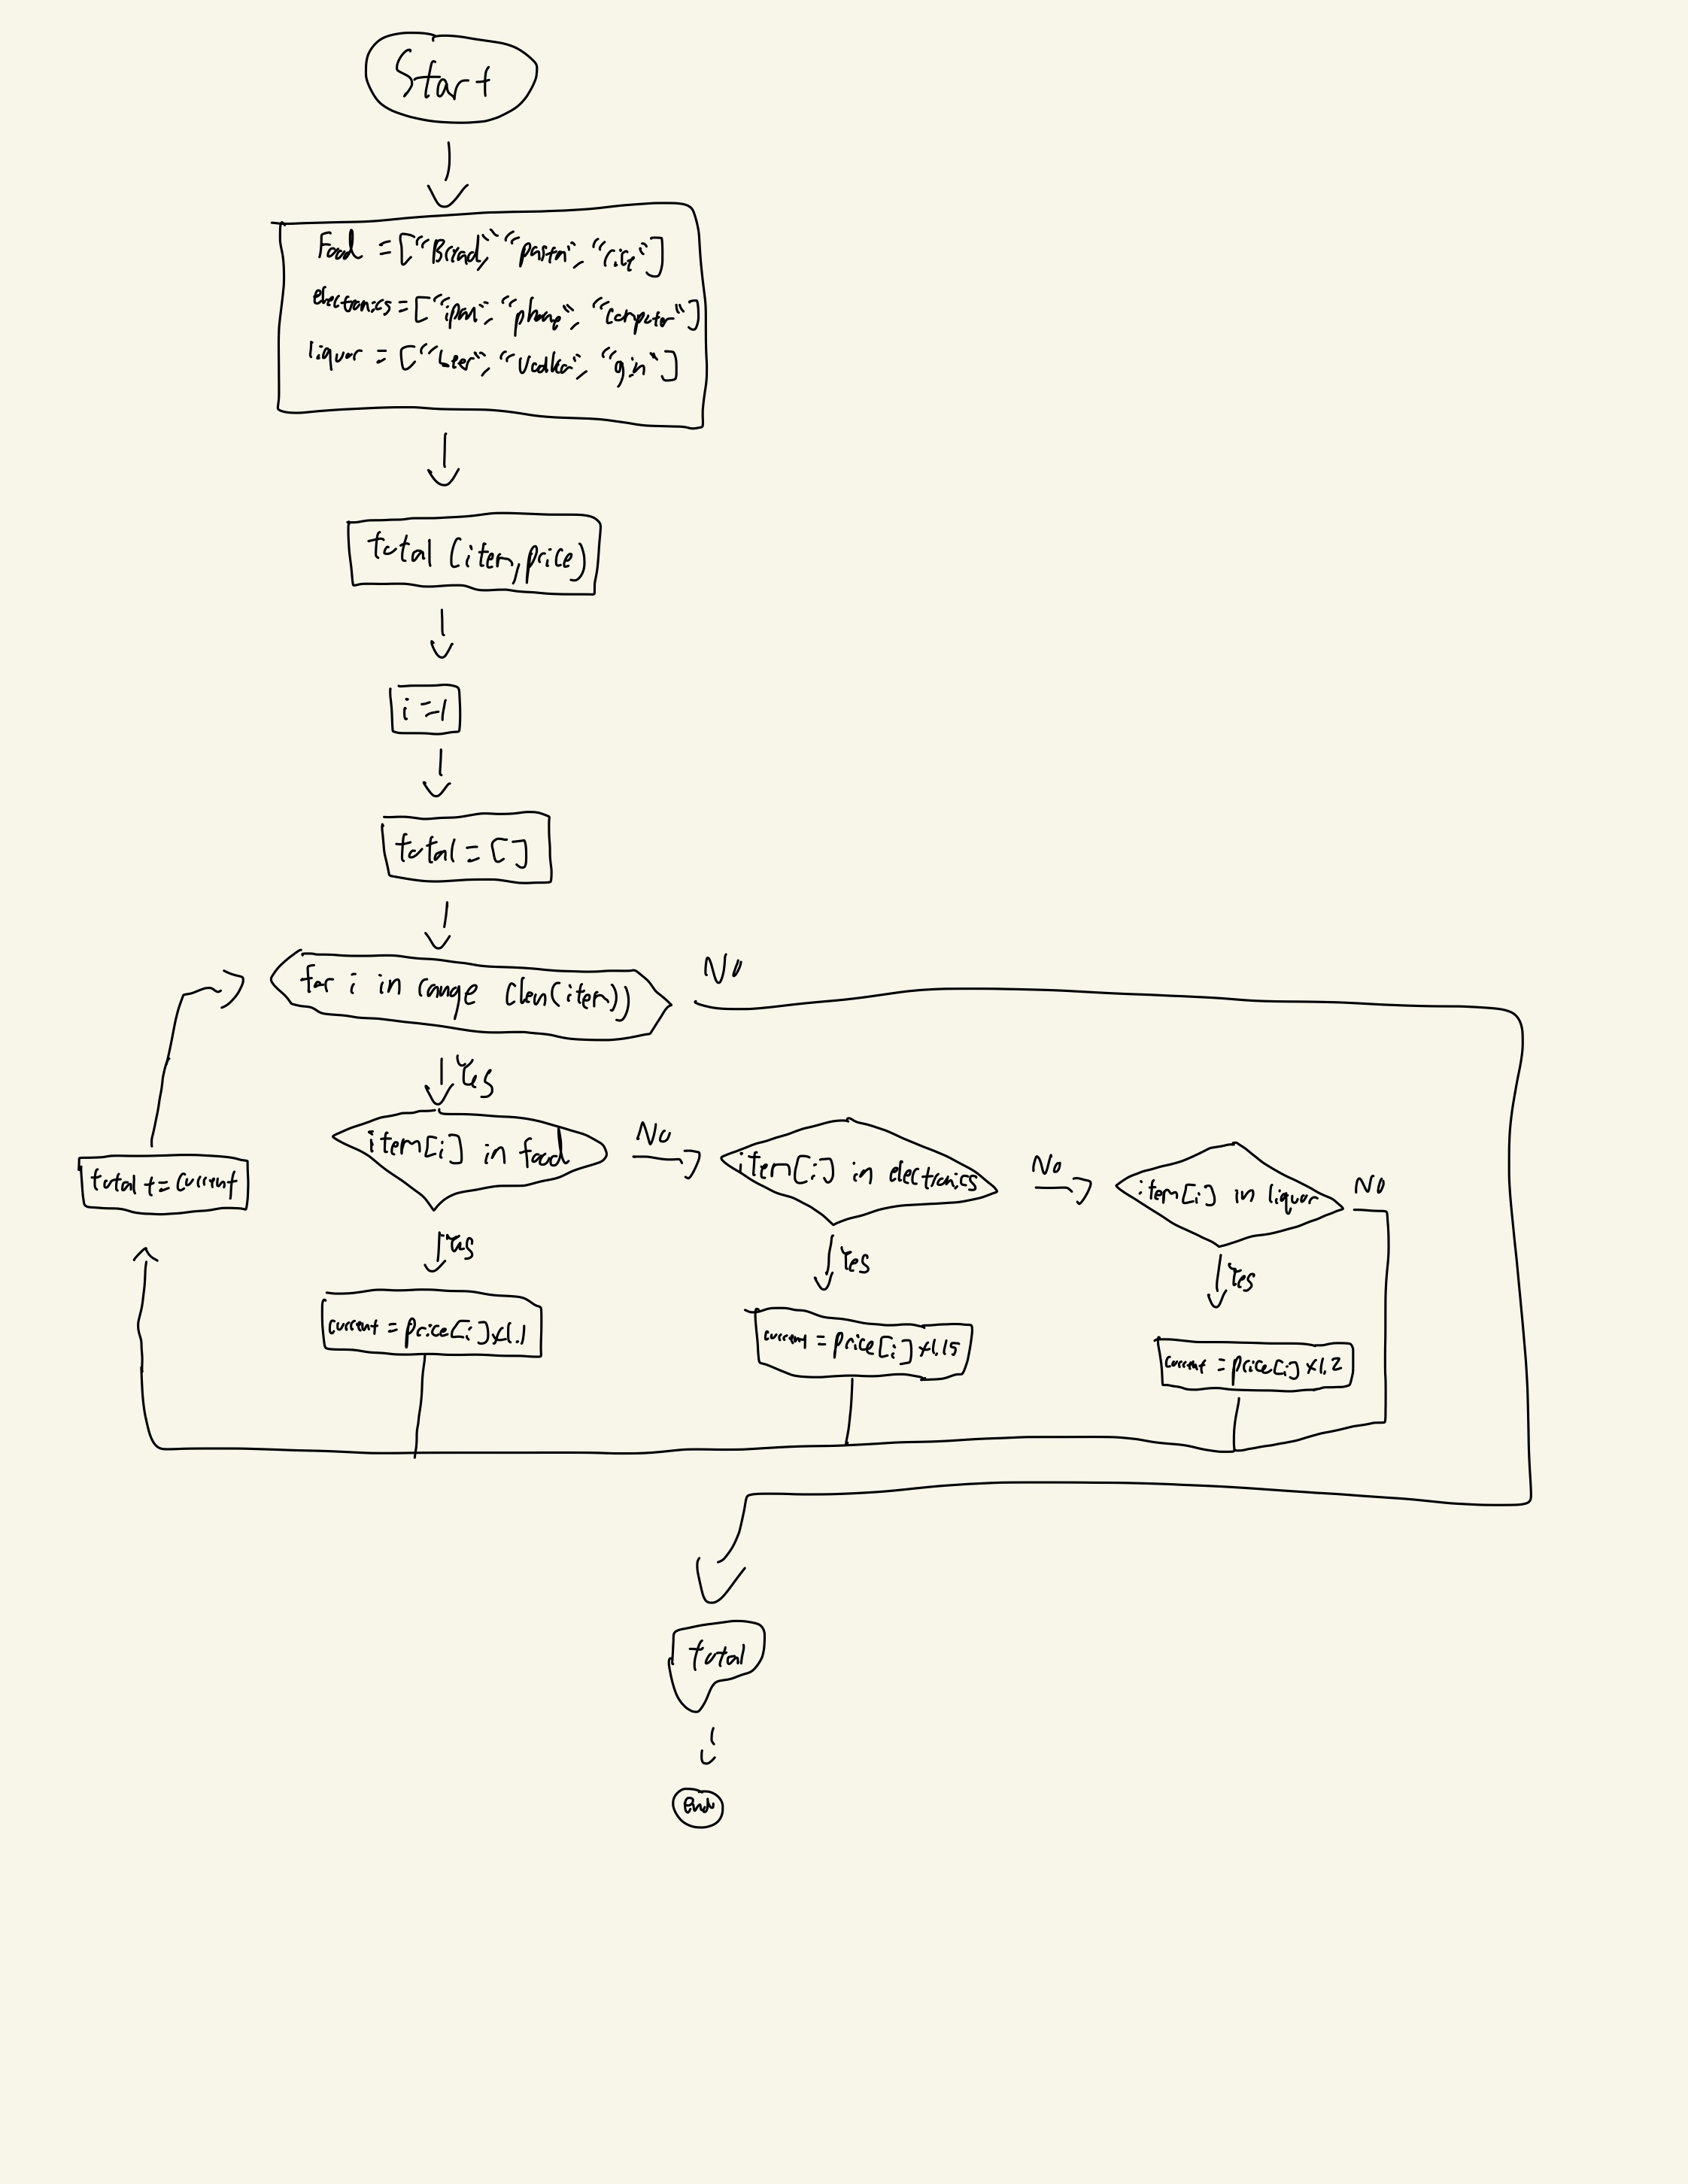 Start
Food = ["Bread", "pasta", "rice"]
electronics = ["ipad", "phone", "computer"]
liquor = ["beer", "vodka", "gin"]
total (item, price)
i = 1
total = []
for i in range (len(item))
No
Yes
item[i] in food
No
item[i] in electronics
No
item[i] in liquor
No
total += current
Yes
Yes
Yes
current = price[i] x 1.1
current = price[i] x 1.15
current = price[i] x 1.2
total
end